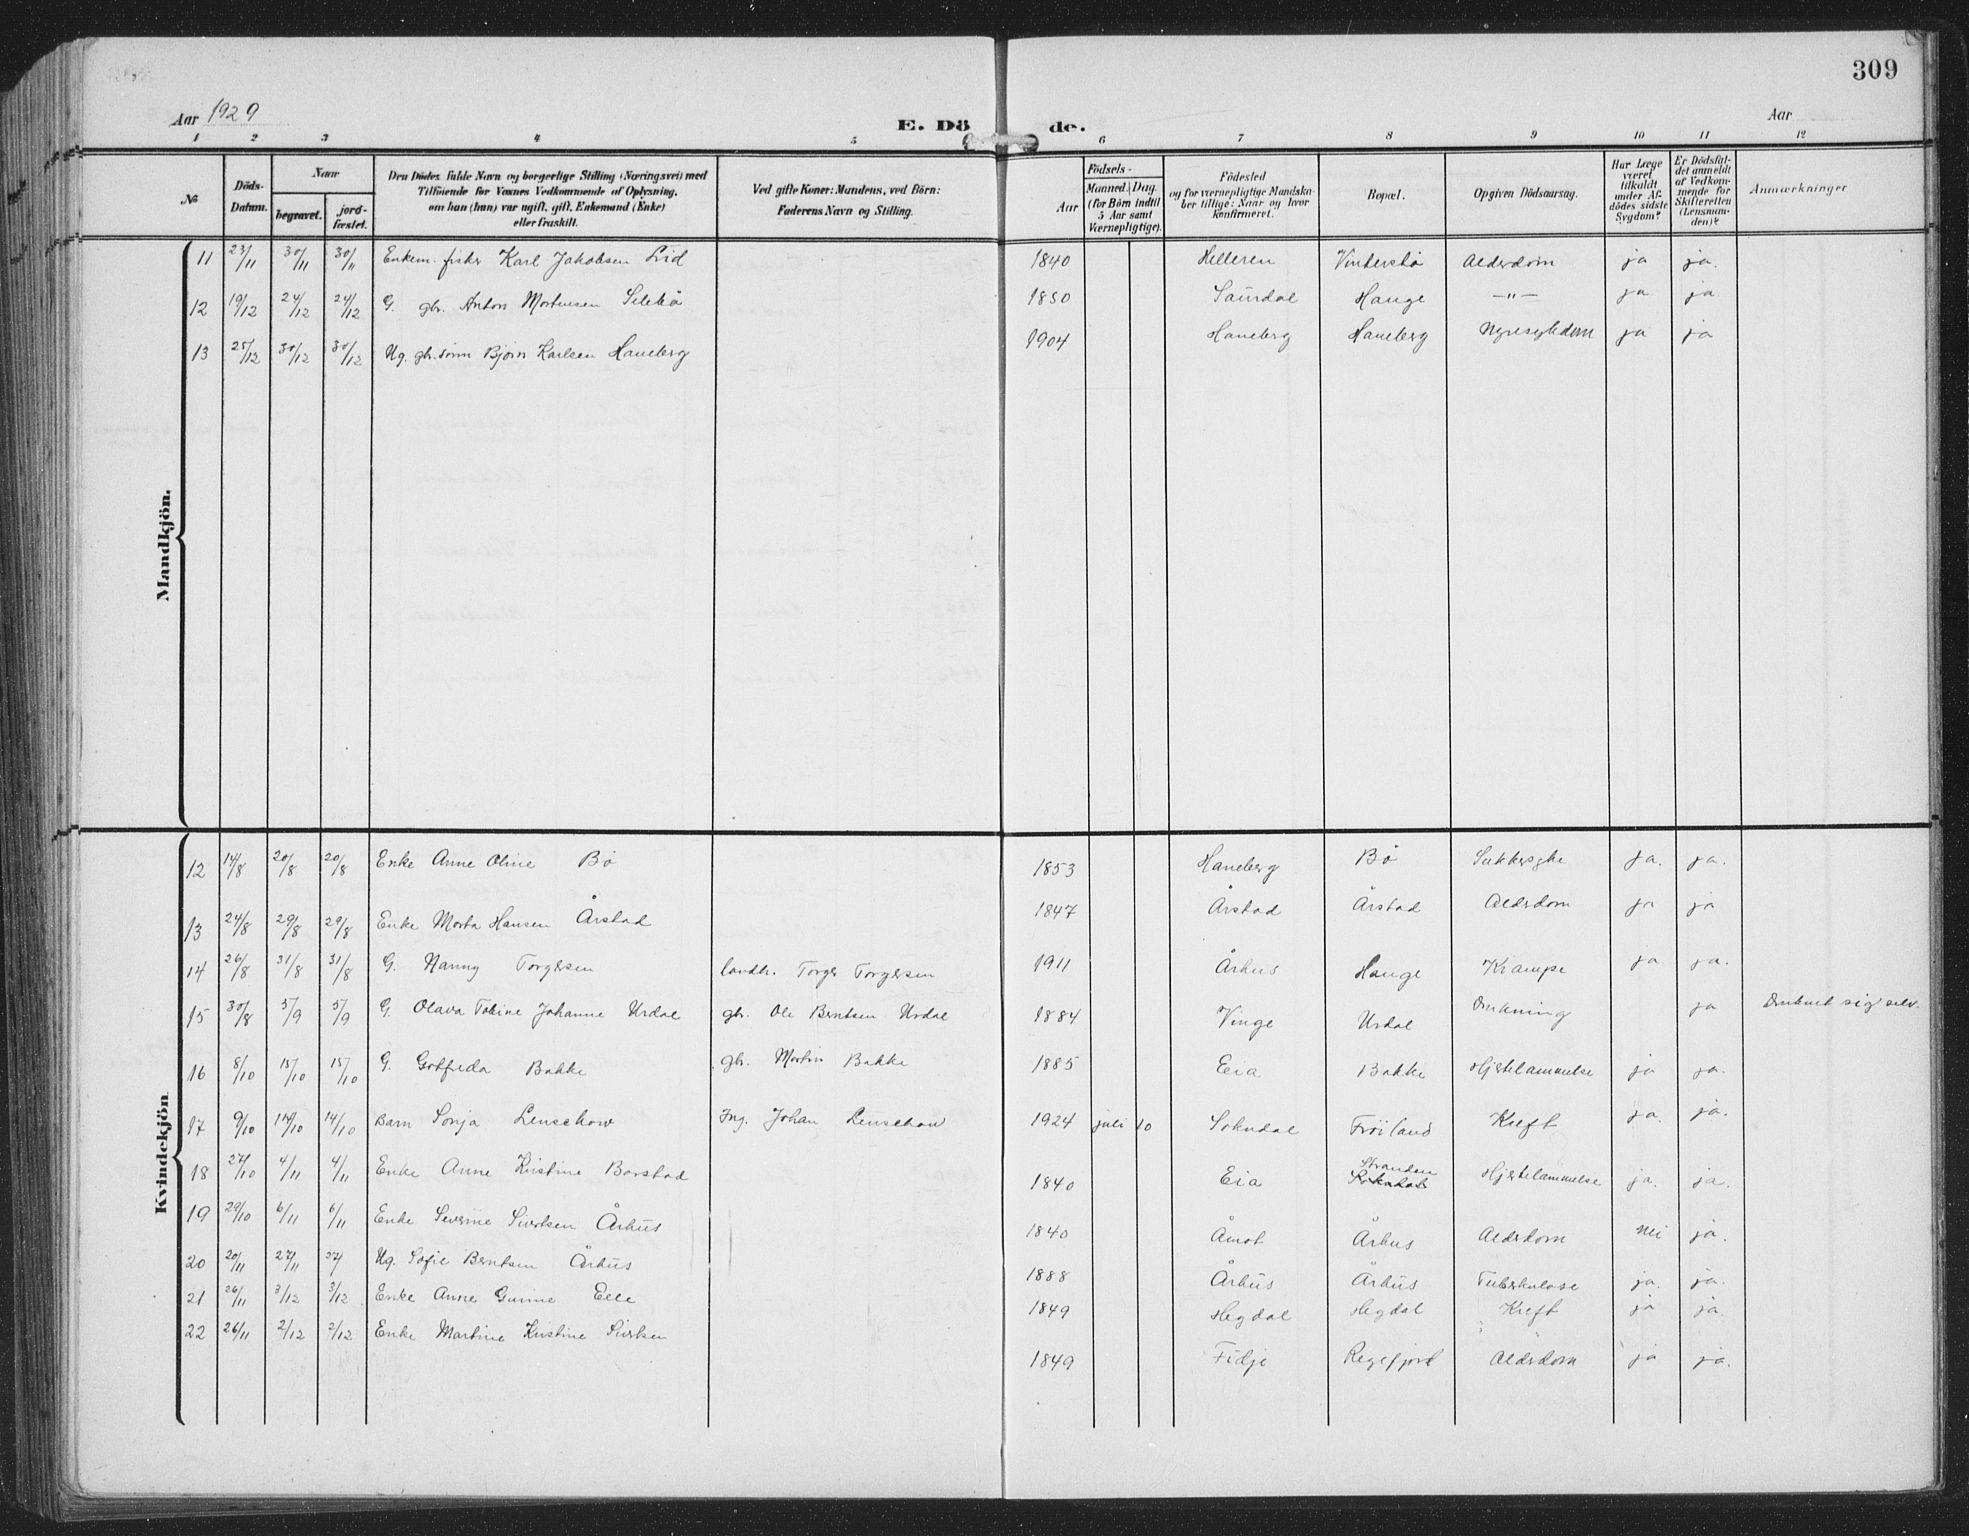 309
Aar 1929
E. Dö de.
Aar
1 2 3 4 5 6 7 8 9 10 11 12
№
Döds-Datum.
Naar
begravet.
jord-fæstet.
Den Dödes fulde Navn og borgerlige Stilling (Næringsvei) med
Tilföiende for Voxnes Vedkommende af Oplysning,
om han (hun) var ugift, gift, Enkemand (Enke)
eller fraskilt.
Ved gifte Koner: Mandens, ved Börn:
Faderens Navn og Stilling.
Aar
Födsels-
Maaned. Dag.
(for Börn indtil
5 Aar samt
Værnepligtige).
Födested
og for værnepligtige Mandska-
ber tillige: Naar og hvor
konfirmeret.
Bopæl.
Opgiven Dödsaarsag.
Har Læge
været
tilkaldt
under Af-
dödes sidste
Sygdom?
Er Dödsfal-
det anmeldt
af Vedkom-
mende for
Skifteretten
(Lensman-
den)?
Anmærkninger
Mandkjön.
11 23/11 30/11 30/11 Enkem. fisker Karl Jakobsen Lid 1840 Helleren Vinterstø Alderdom ja ja.
12 19/12 24/12 24/12 G. gbr. Anton Mortensen 1850 Saurdal Hauge —"— ja ja
13 25/12 30/12 30/12 Ug. gbr.sønn Bjørn Karlsen Haneberg 1904 Haneberg Haneberg Nyresykdom ja ja
Kvindekjön
12 14/8 20/8 20/8 Enke Anne Oline Bø 1853 Haneberg Bø Sukkersyke ja. ja.
13 24/8 29/8 29/8 Enke Marta Hansen Årstad 1847 Årstad Årstad Alderdom ja ja
14 26/8 31/8 31/8 G. Nanny Torgersen landh. Torger Torgersen 1911 Århus Hauge Krampe ja. ja.
15 30/8 5/9 5/9 G. Olava Tobine Johanne Urdal gbr. Ole Berntsen Urdal 1884 Vinge Urdal Drukning ja Druknet sig selv.
16 8/10 15/10 15/10 G. Gotfreda Bakke gbr. Martin Bakke 1885 Eia Bakke Hjertelammelse ja ja.
17 9/10 14/10 14/10 Barn Sonja Lenschow Ing. Johan Lenschow 1924 juli 10 Sokndal Frøiland Kreft ja. ja.
18 27/10 4/11 4/11 Enke Anne Kristine Barstad 1840 Eia Stranden Sokndal Hjertelammelse ja. ja.
19 29/10 6/11 6/11 Enke Severine Sivertsen Århus 1840 Åmot Århus Alderdom Nei ja.
20 20/11 27/11 27/ Ug. Sofie Berntsen Århus 1888 Århus Århus Tuberkulose ja. ja.
21 26/11 3/12 3/12 Enke Anne Gurine Eele 1849 Hegdal Hegdal Kreft ja ja.
22 26/11 2/12 2/12 Enke Martine Kristine Sivertsen 1849 Fidje Regefjord Alderdom ja ja.